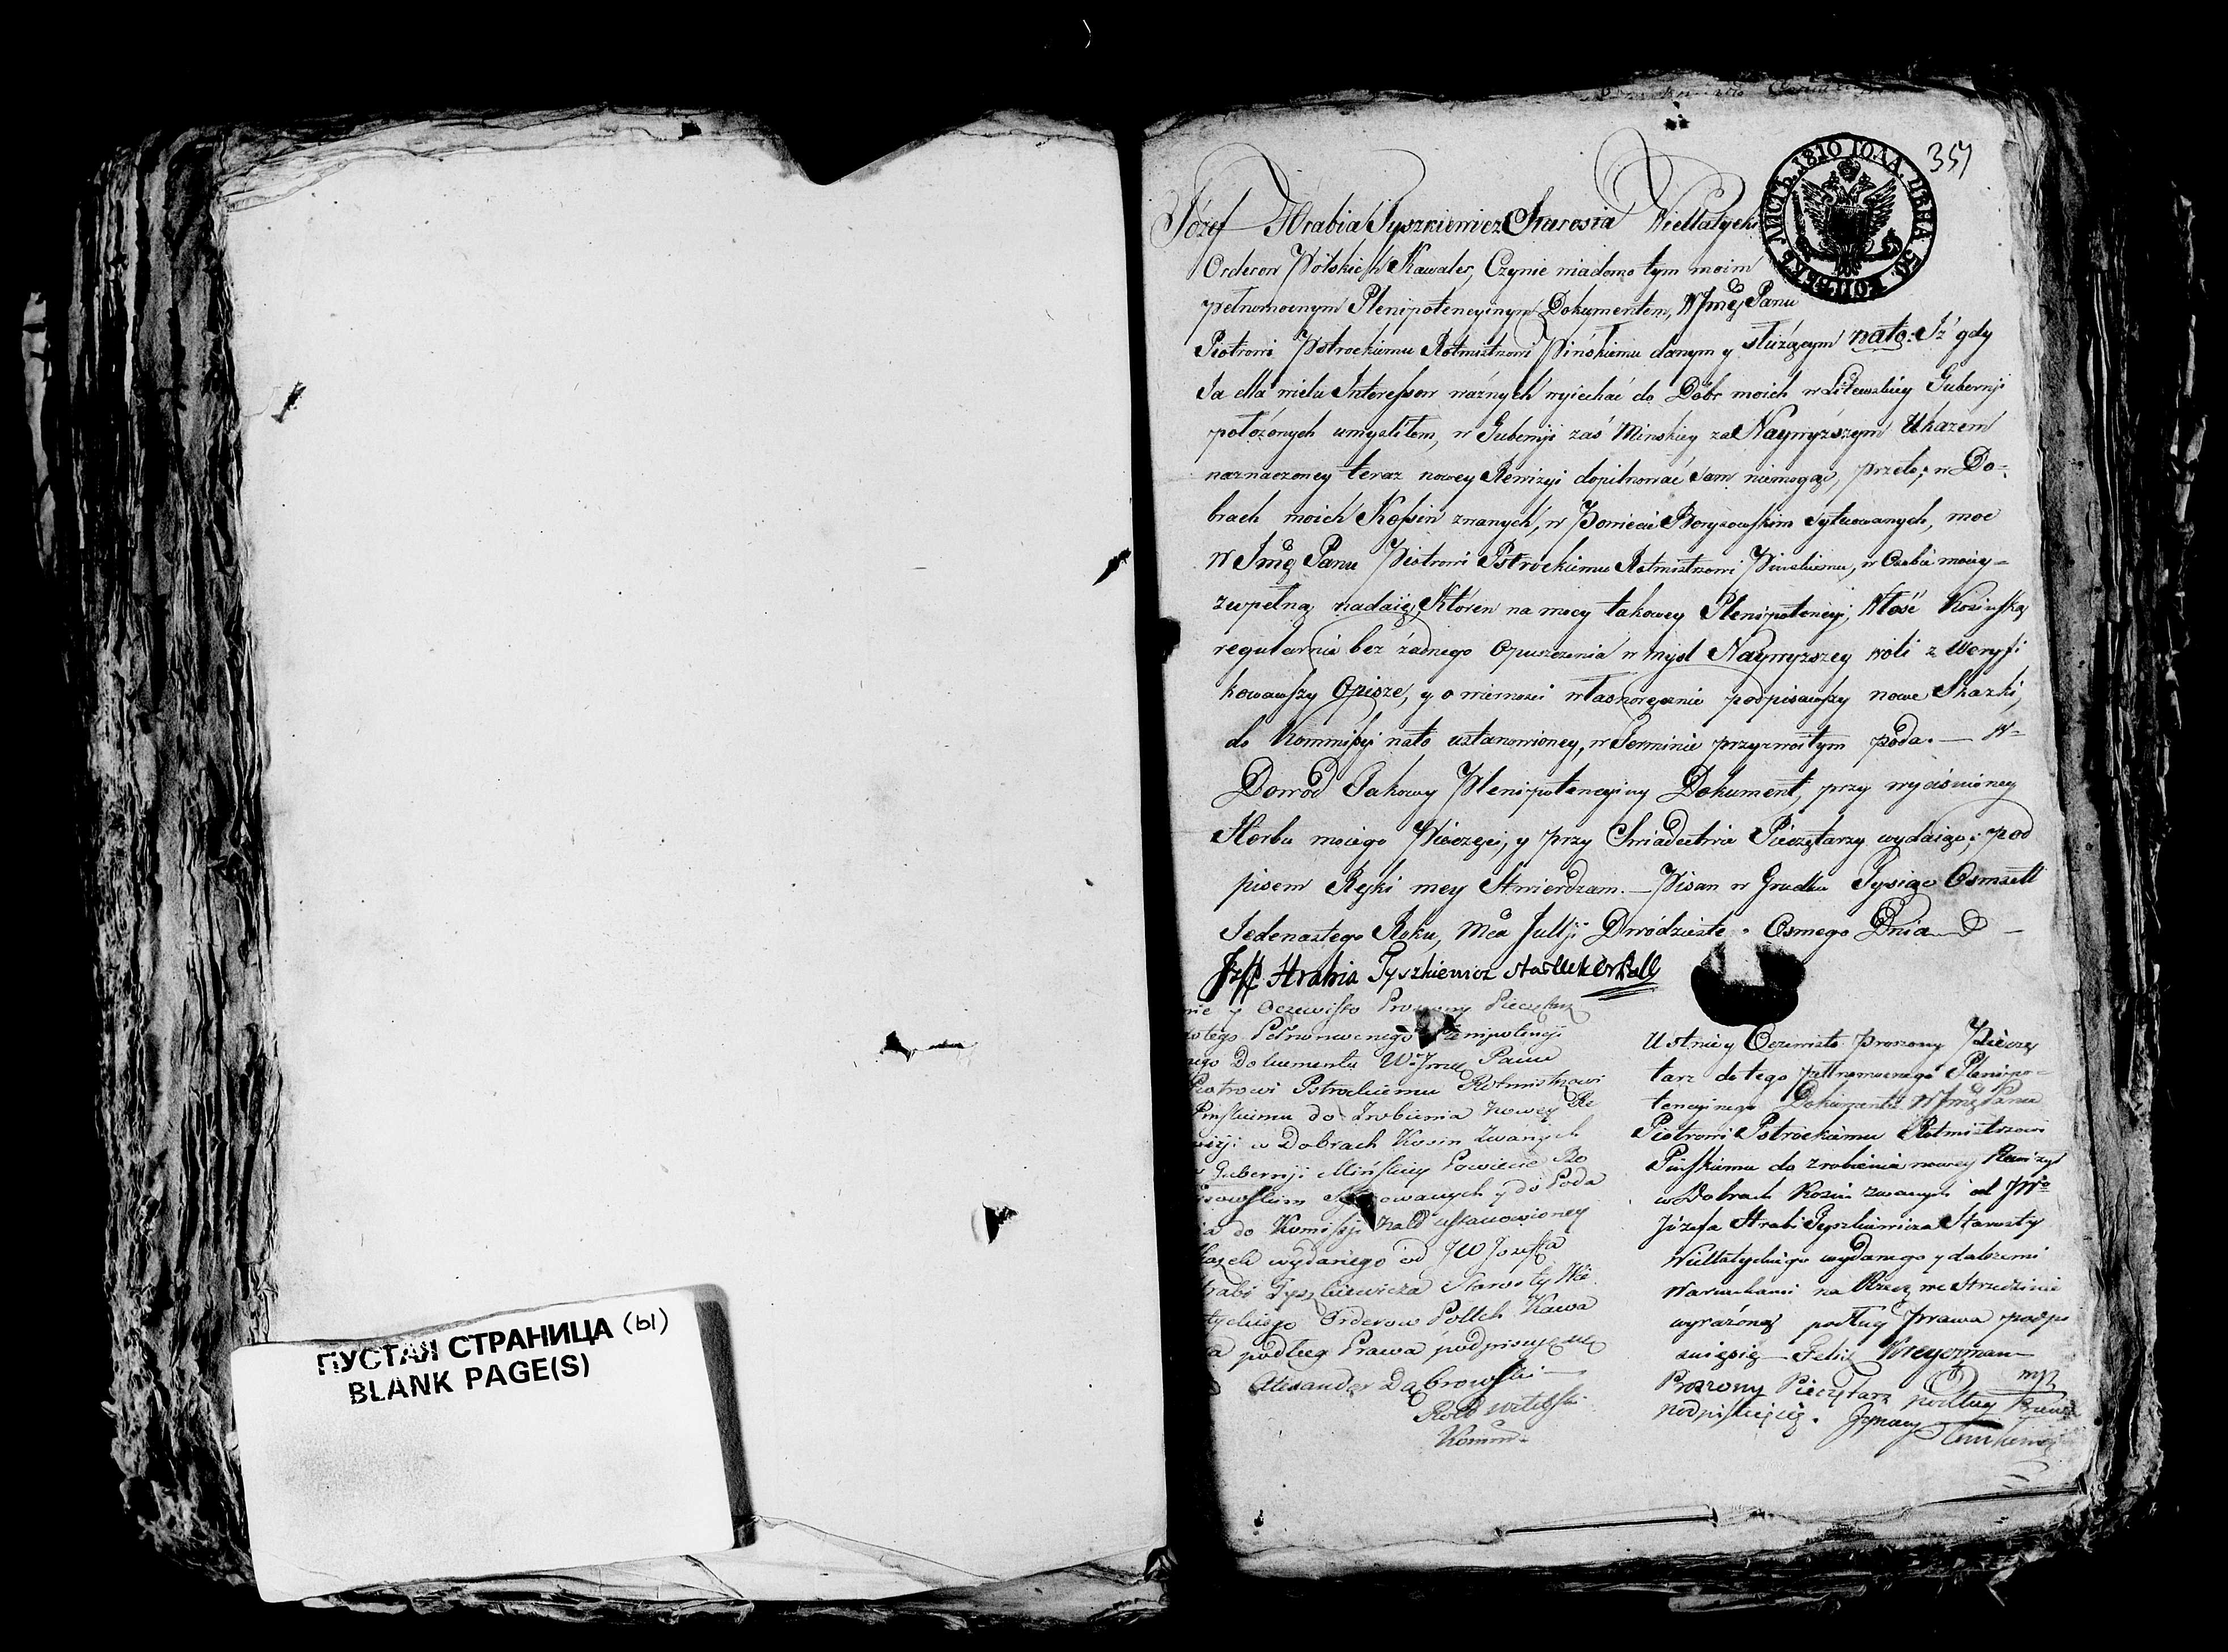 ПУСТАЯ СТРАНИЦА (ы)
BLANK PAGE(S)
357
ЛИСТЪ. 1810 ГОДА. ЦѢНА 50. КОПѢЕКЪ
Józef Hrabia Tyszkiewicz Starosta Wiellatycki
Orderow Polskich Kawaler, Czynie wiadomo tym moim
pełnomocnym Plenipotencyinym Dokumentem, W Jmę Panu
Piotrowi Pstrockiemu Rotmistrzowi Pińskiemu danym y służącym nato: Iż gdy
Ja dla wielu Interessow ważnych wyiechać do Dóbr moich w Litewskiey Gubernji
położonych umyslilem, w Gubernji zaś Minskiey za Naywyższym Ukazem
naznaczoney teraz nowey Rewizyi dopilnować sam niemogąc, przeto; w Do-
brach moich Kosin zwanych, w Powiecie Borysowskim sytuowanych, moc
W Jmę Panu Piotrowi Pstrockiemu Rotmistrzowi Pinskiemu, w Osobie moiey-
zupełną nadaię, Któren na mocy takowey Plenipotencyi, Włość Kosinską
regularnie bez żadnego Opuszczenia w mysl Naywyższey woli z weryfi
kowawszy Opisze, y o wiernosci własnoręcznie podpisawszy nowe Skazki,
do Kommissyi nato ustanowioney, w Terminie przyzwoitym poda. — W-
Dowod Takowy Plenipotencyiny Dokument, przy wyciśnioney
Herbu moiego Pieczęci, y przy Swiadectwie Pieczętarzy wydaiąc; pod
pisem Ręki mey Stwierdzam. — Pisan w Grudku Tysiąc Osmsett
Jedenastego Roku, Mca Julji Dwódzieste Osmego Dnia —
Hrabia Tyszkiewicz
nie y Oczewisto Proszony Pieczętarz
dotego Pełnomocnego Plenipotencji
nego Dokumentu W Jmę Panu
Piotrowi Pstrockiemu Rotmistrzowi
Pinskiemu do Zrobienia Nowey Re
wizji w Dobrach Kosin Zwanych
w Gubernji Mińskiey Powiecie Bo
rysowskim Sytuowanych y do Poda
nia do Komissji nato ustanowioney
Skazek wydanego od JW Jozefa
Hrabi Tyszkiewicza Starosty Wie
tyckiego Orderow Polsch Kawa
podług Prawa podpisuję się
Alexander Dąbrowski —
Ustnie y Oczewisto Proszony Pieczę
tarz do tego pełnomocnego Plenipo-
tencyinego Dokumentu W Jmę Panu
Piotrowi Pstrockiemu Rotmistrzowi
Pinskiemu do zrobienia nowey Rewizyi
w Dobrach Kosin zwanych od JWo
Józefa Hrabi Tyszkiewicza Starosty
Wiellatyckiego wydanego y dalszemi
Warunkami na Rzecz we Strzedzinie
wyrażoną podług Prawa podpi
suię się — Felix Meyerman —
mp
Proszony Pieczętarz podług Prawa
podpisuję się. Ignacy